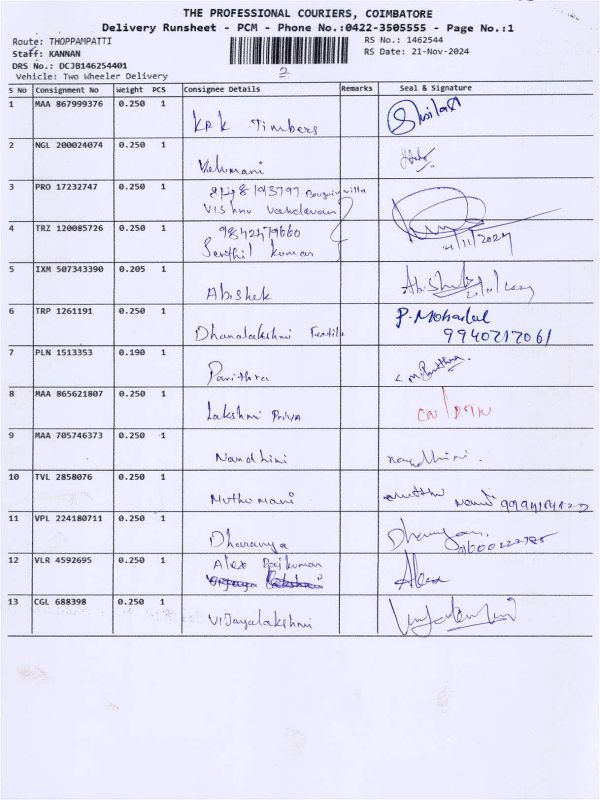 THE PROFESSIONAL COURIERS, COIMBATORE
Delivery Runsheet - PCM - Phone No.:0422-3505555 - Page No.:1
Route: THOPPAMPATTI
RS No.: 1462544
Staff: KANNAN
RS Date: 21-Nov-2024
DRS No.: DCJB146254401
Vehicle: Two Wheeler Delivery
2
S No Consignment No Weight PCS Consignee Details Remarks Seal & Signature
1 MAA 867999376 0.250 1 KPK Timbers
2 NGL 200024074 0.250 1 Velumani
3 PRO 17232747 0.250 1
Vishnu
4 TRZ 120085726 0.250 1
Senthil kumar 21/11/2024
5 IXM 507343390 0.205 1 Abishek Abishek
6 TRP 1261191 0.250 1 Dhanalakshmi Textile P.Mohanlal
9940217061
7 PLN 1513353 0.190 1 Pavithra
8 MAA 865621807 0.250 1 Lakshmi Priya
9 MAA 705746373 0.250 1 Nandhini nandhini.
10 TVL 2858076 0.250 1 Muthu mani
11 VPL 224180711 0.250 1 Dharanya
12 VLR 4592695 0.250 1 Alex Rajkumar Alex
13 CGL 688398 0.250 1 Vijayalakshmi